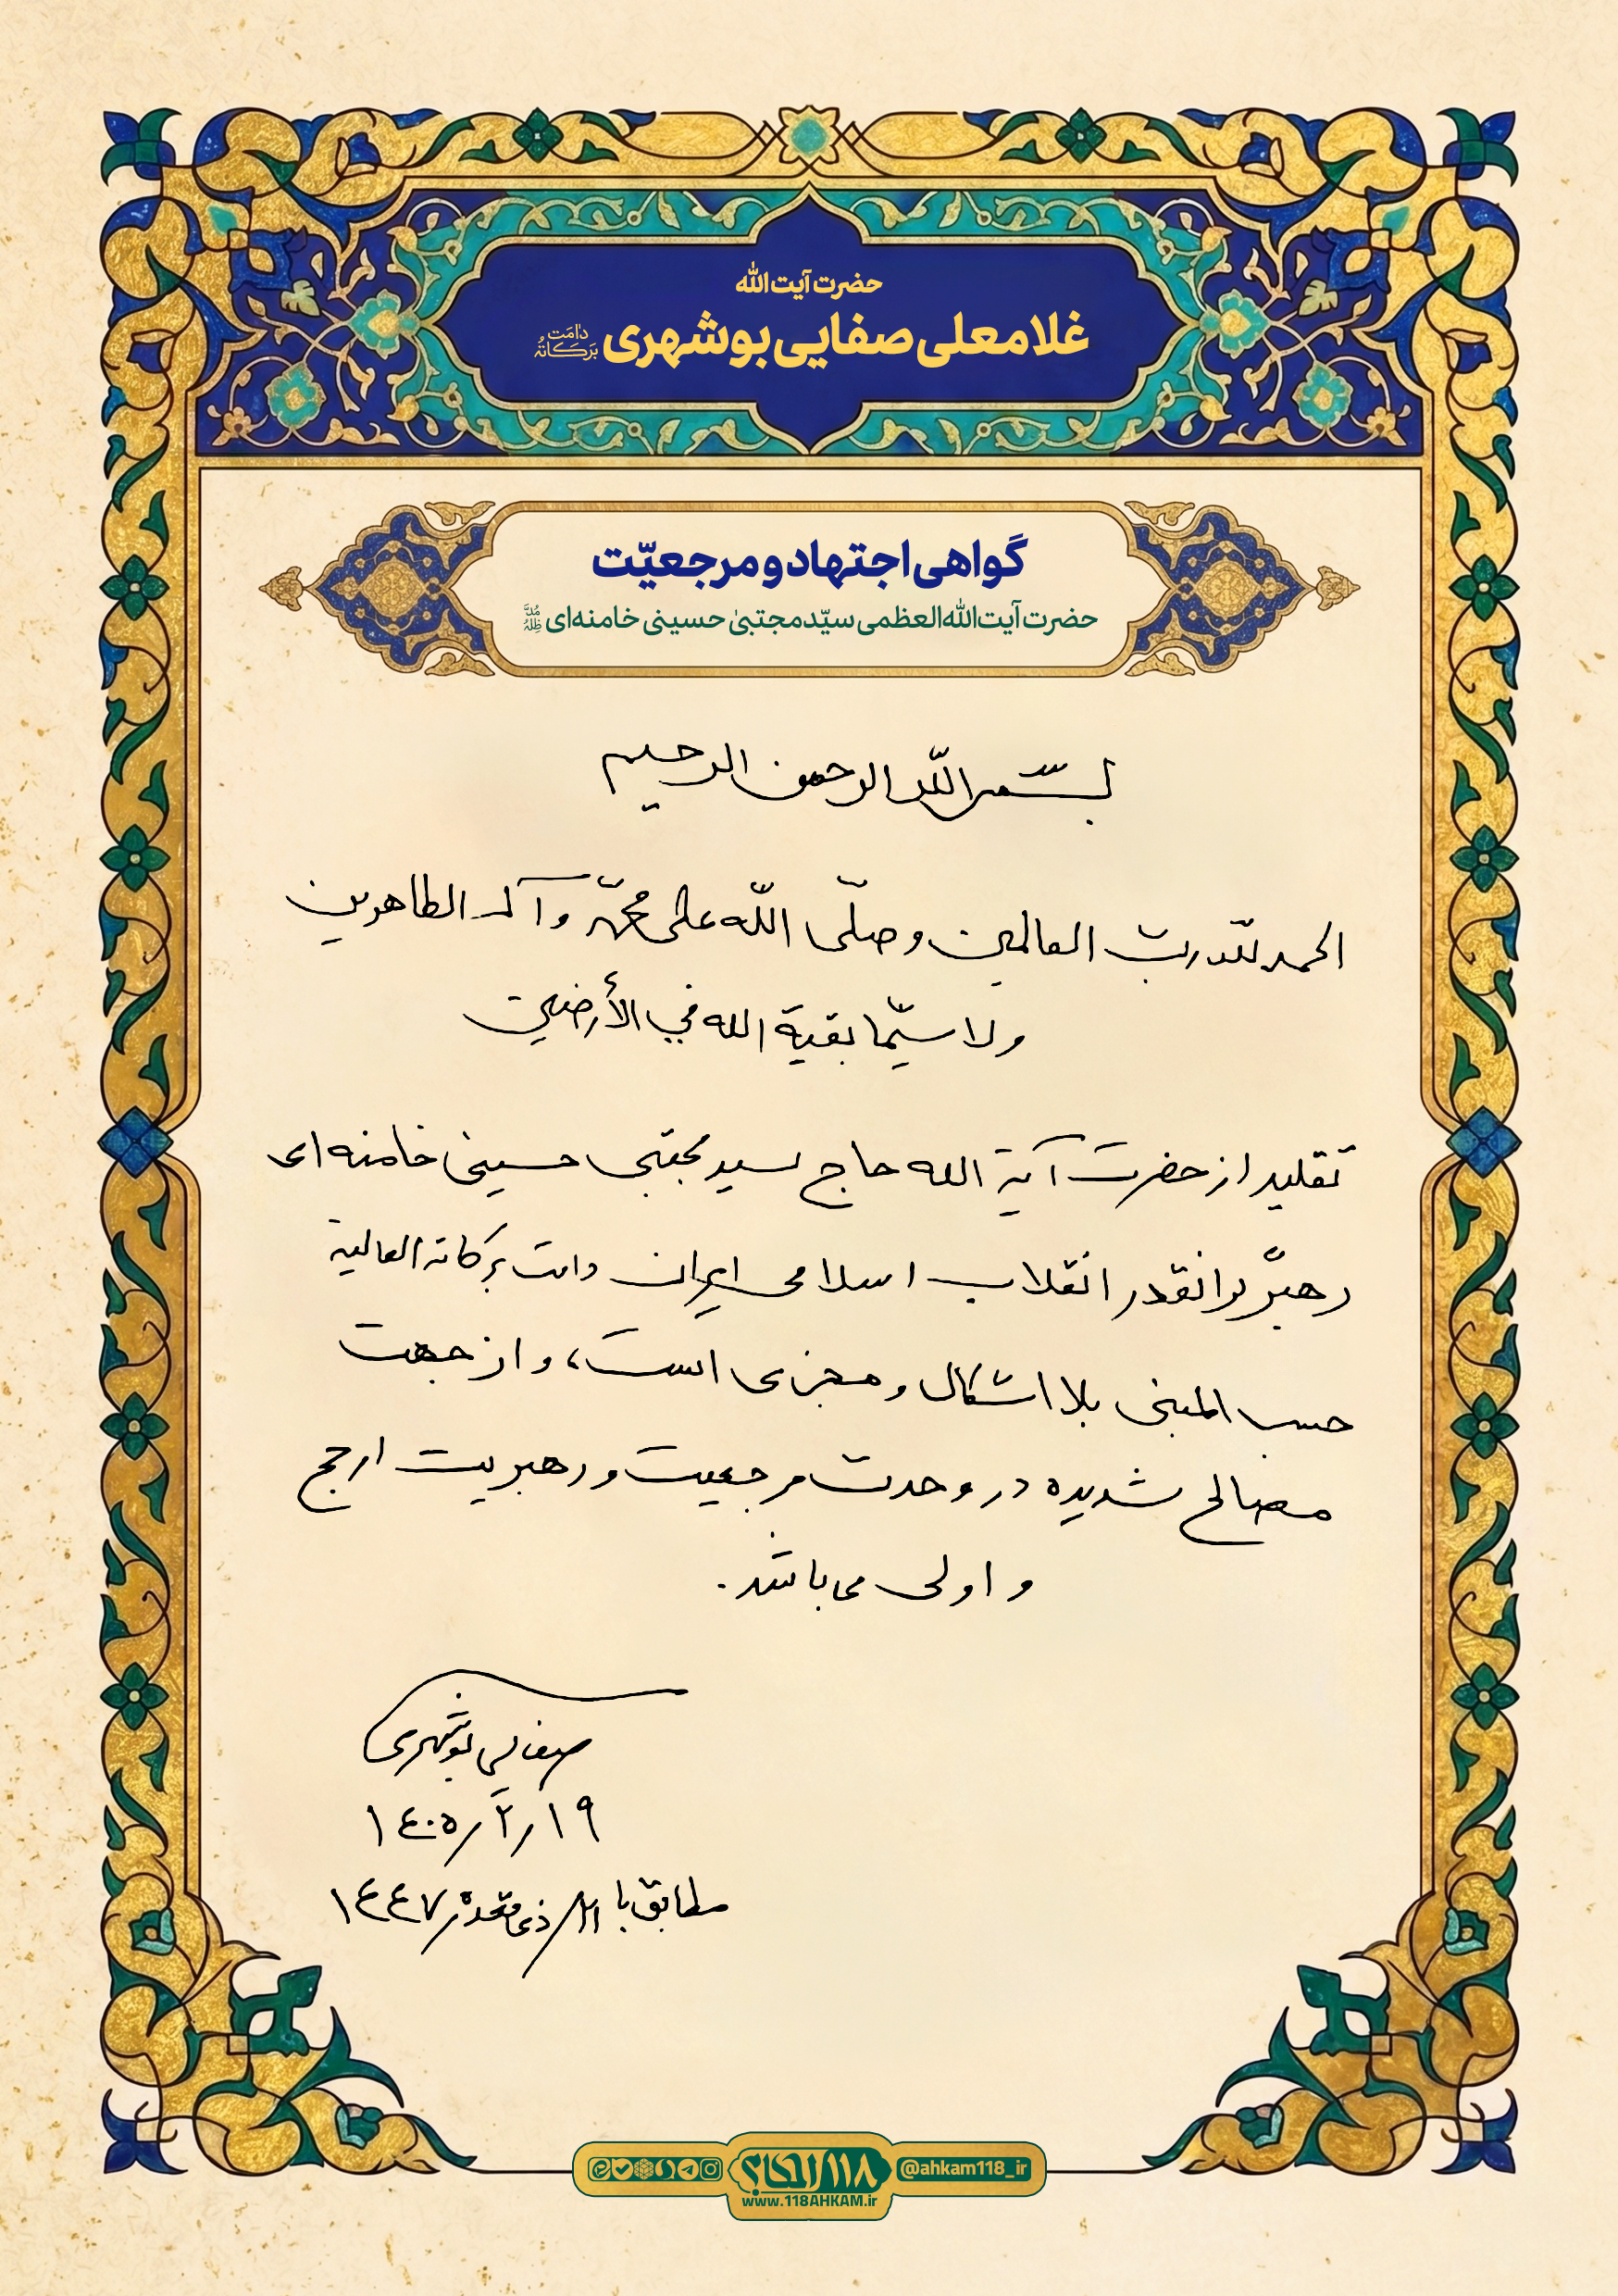 حضرت آیت الله
غلامعلی صفایی بوشهری دامَت بَرَکاتُهُ
گواهی اجتهاد و مرجعیّت
حضرت آیت‌الله‌العظمی سیّد مجتبیٰ حسینی خامنه‌ای مُدَّ ظِلُّهُ
بسم الله الرحمن الرحیم
الحمد لله ربّ العالمین و صلّی اللّه علی محمّد و آله الطاهرین
و لا سیّما بقیة الله في الأرضین
تقلید از حضرت آیة الله حاج سید مجتبی حسینی خامنه ای
رهبر گرانقدر انقلاب اسلامی ایران دامت برکاته العالیة
حسب المبنی بلا اشکال و مجزی است، و از جهت
مصالح شدیده در وحدت مرجعیت و رهبریت ارجح
و اولی می باشد.
صفایی بوشهری
۱٤۰۵/۲/۱۹
مطابق با ۲۱/ذی قعده/۱٤٤۷
@ahkam118_ir
۱۱۸ احکام
www.118AHKAM.ir